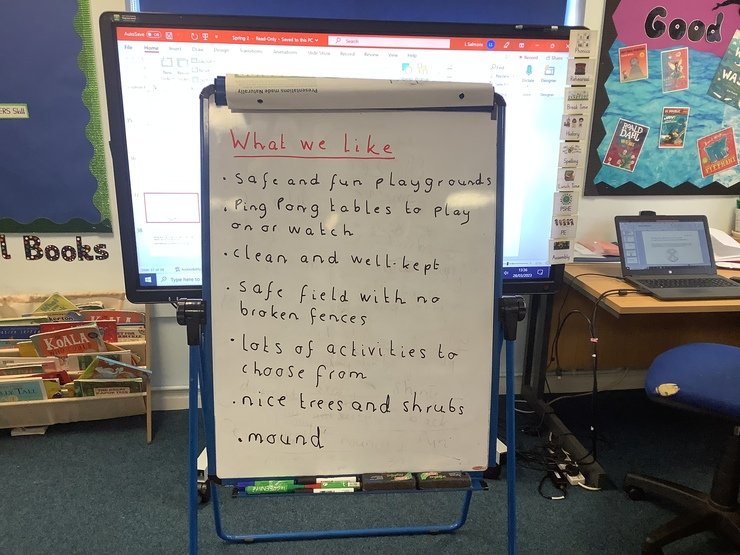 AutoSave
Spring 2 - Read-Only - Saved to this PC
Search
Home
Insert
Draw
Design
Transitions
Animations
Slide Show
Record
Review
View
Help
Record
Designer
Presentations made Naturally
What we like
• safe and fun playgrounds
• Ping Pong tables to play
on or watch
• clean and well-kept
• safe field with no
broken fences
• lots of activities to
choose from
• nice trees and shrubs
• mound
Type here to
13:36
Phonics
Break Time
History
Spelling
Lunch Time
PSHE
PE
Assembly
Good
ROALD
DAHL
l Books
KOALA